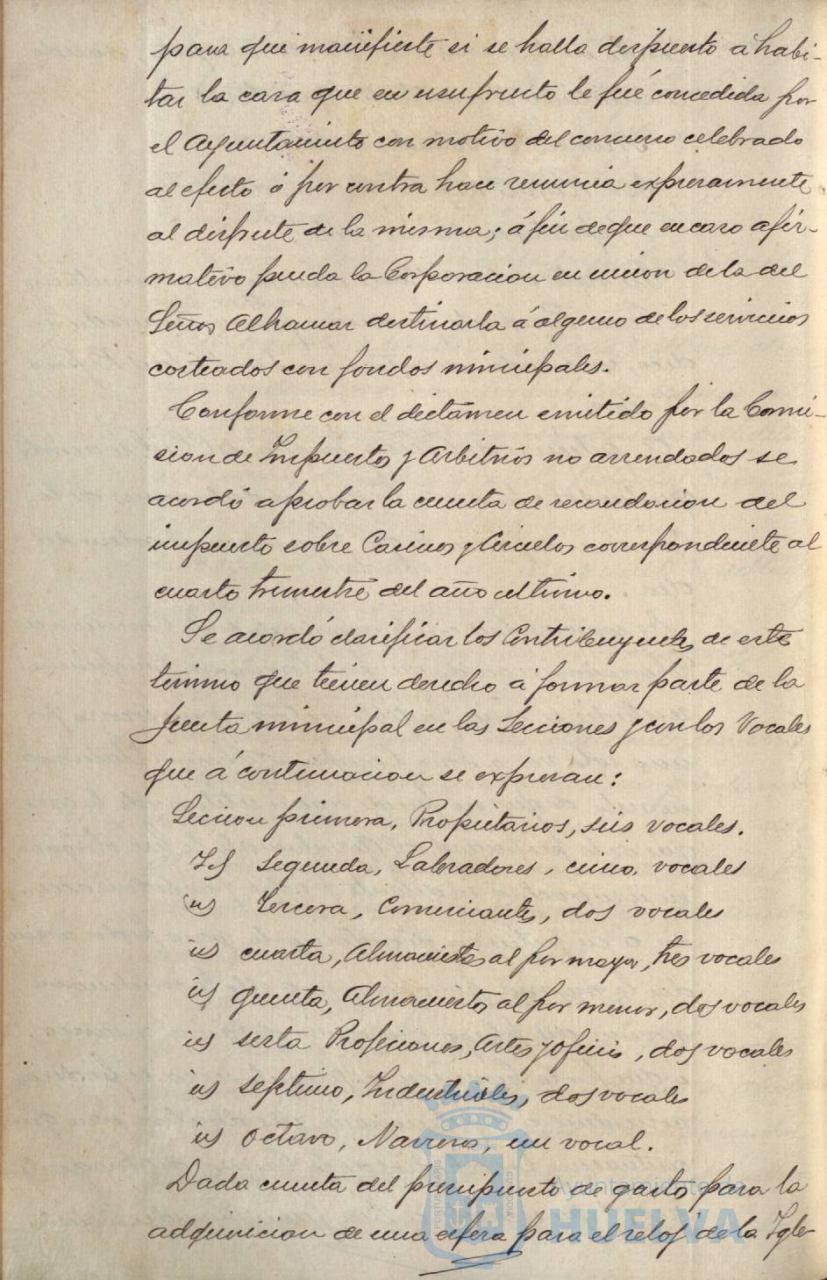 para que manifieste si se halla dispuesto á habi-
tar la casa que en usufructo le fué concedida por
el Ayuntamiento con motivo del concurso celebrado
al efecto ó por contra hace renuncia expresamente
al disfrute de la misma; á fin de que en caso afir-
mativo pueda la Corporacion en union de la del
Señor Alhamar destinarla á alguno de los servicios
costeados con fondos municipales.
Conforme con el dictámen emitido por la Comi-
sion de Impuestos y Arbitrios no arrendados se
acordó aprobar la cuenta de recaudacion del
impuesto sobre Casinos y Circulos correspondiente al
cuarto trimestre del año ultimo.
Se acordó clasificar los Contribuyentes de este
termino que tienen derecho á formar parte de la
Junta municipal en las Secciones y con los Vocales
que á continuacion se expresan:
Seccion primera, Propietarios, seis vocales.
Id segunda, Labradores, cinco vocales
id tercera, Comerciantes, dos vocales
id cuarta, Almacenistas al por mayor, tres vocales
id quinta, Almacenistas al por menor, dos vocales
id sesta Profesiones, Artes y Oficios, dos vocales
id septimo, Industriales, dos vocales
id octavo, Navieros, un vocal.
Dada cuenta del presupuesto de gasto para la
adquisicion de una esfera para el reloj de la Igle-
Ayuntamiento de
HUELVA